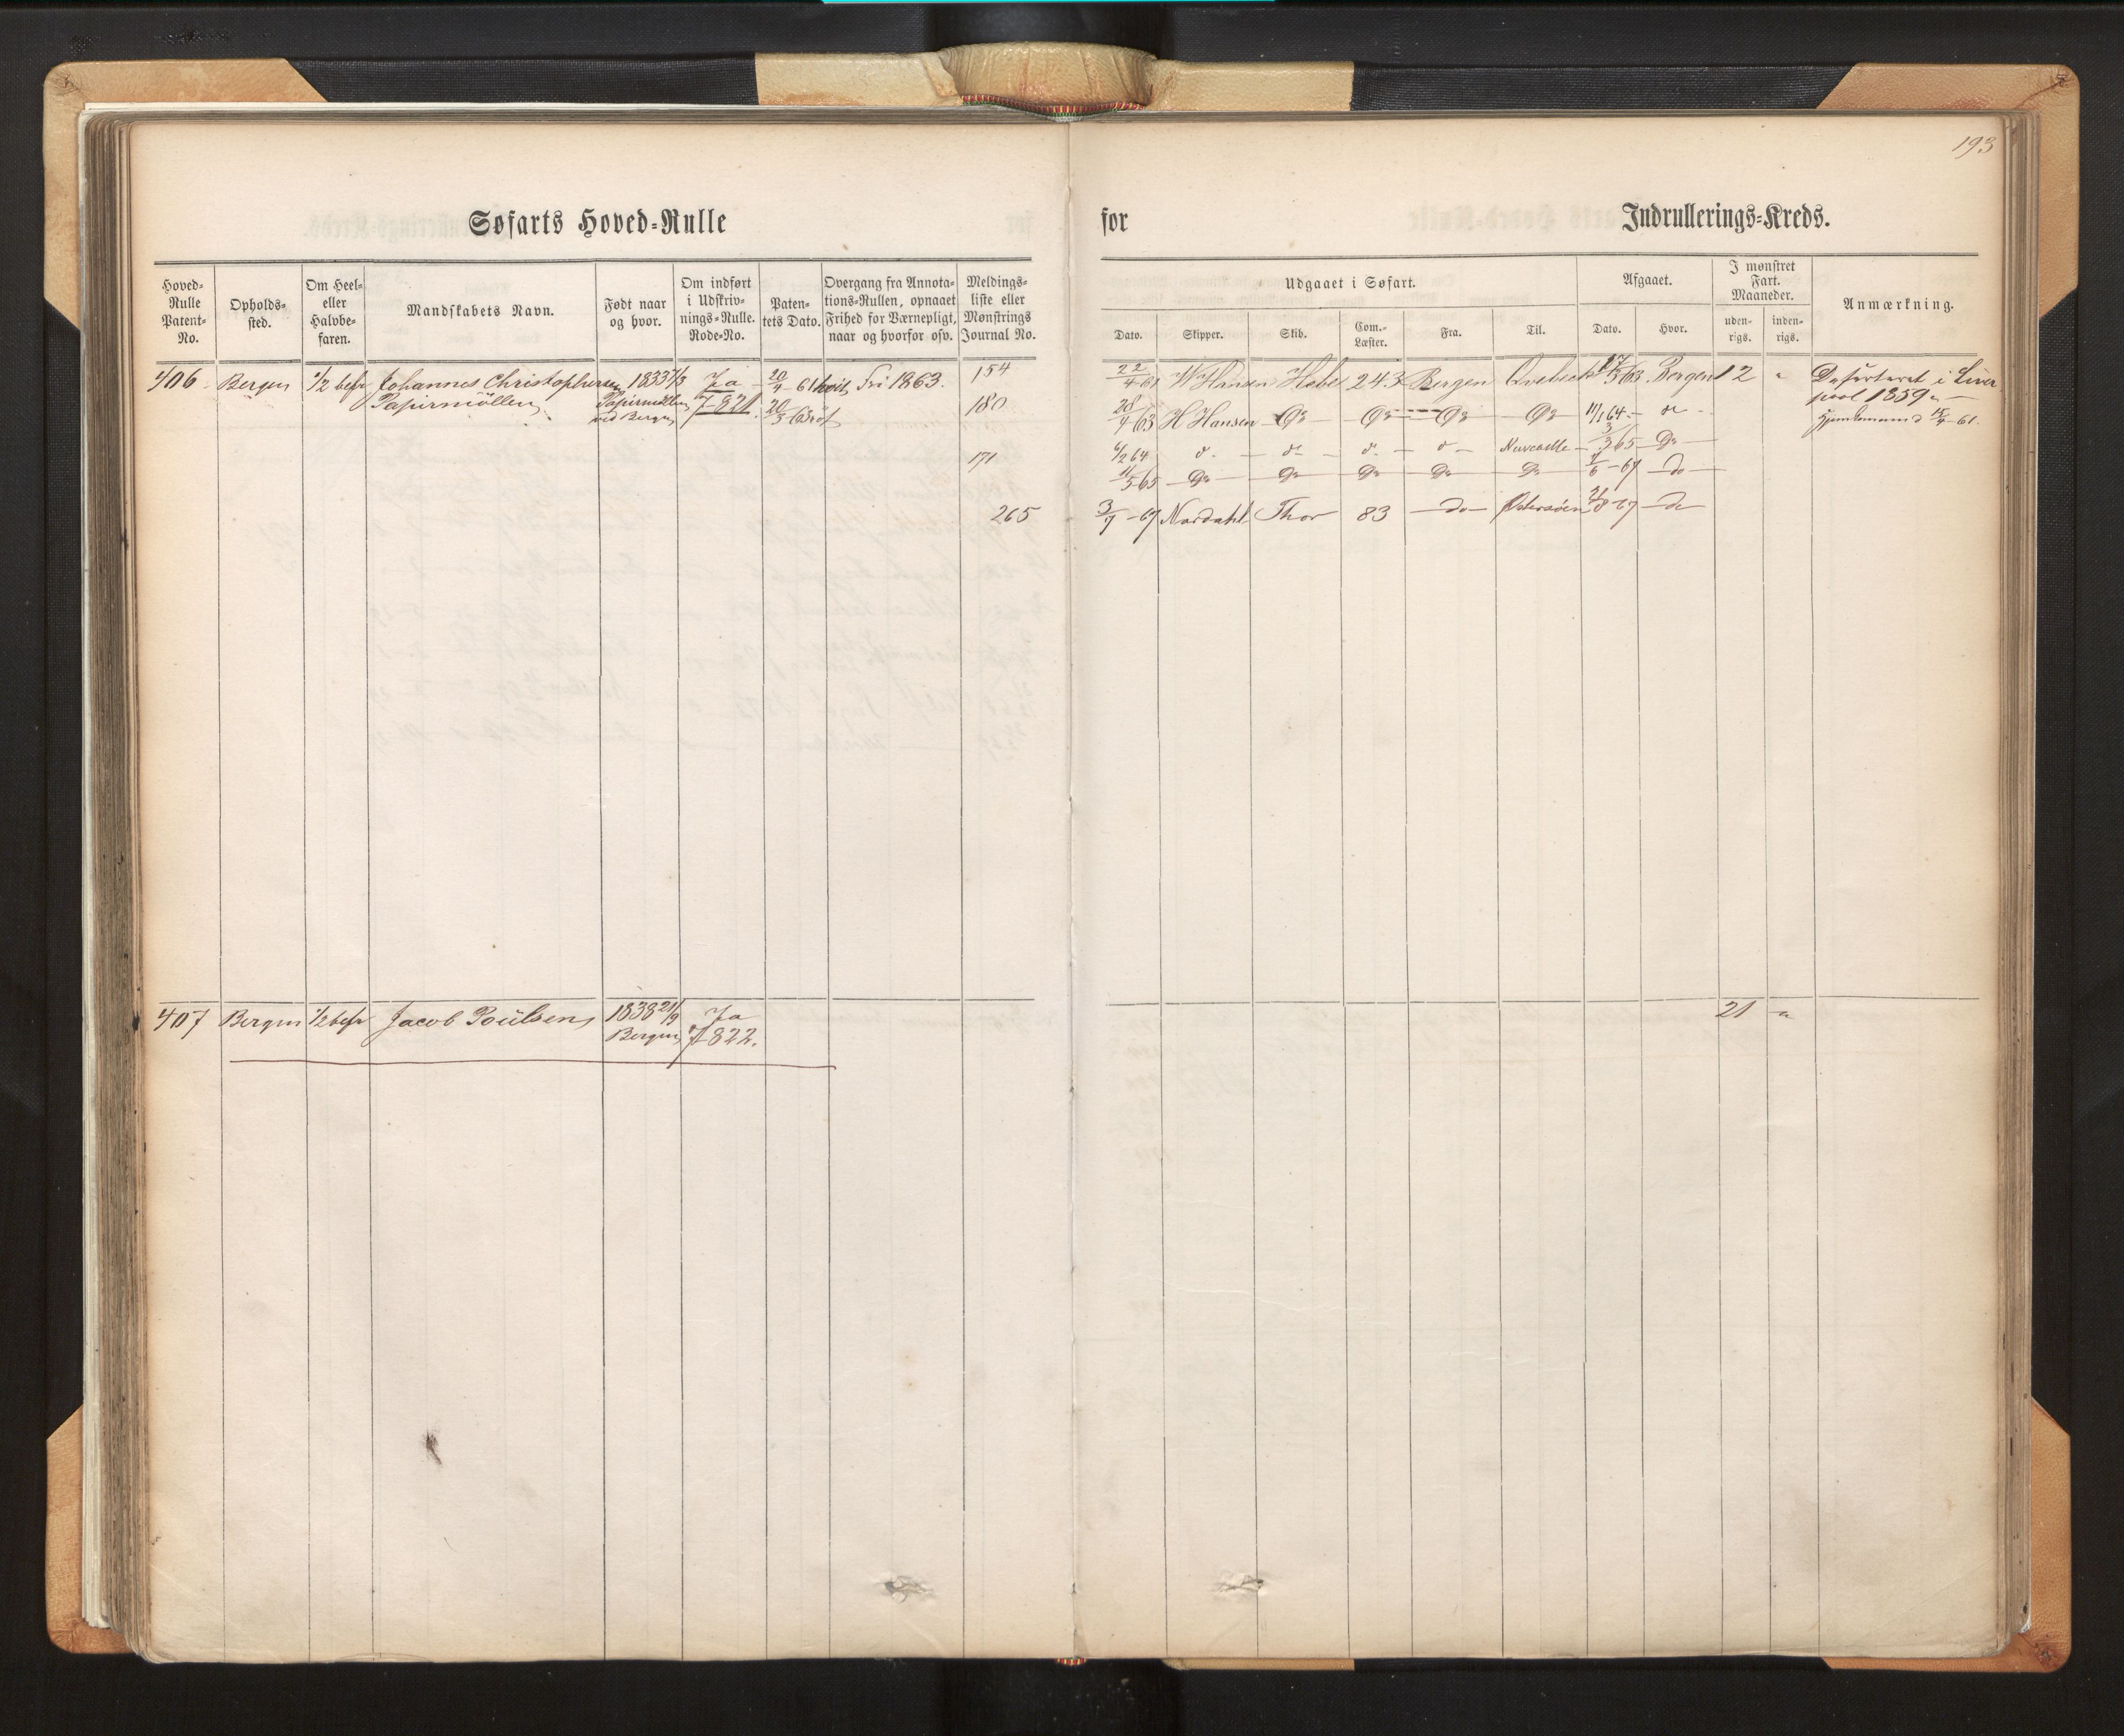 193
Søfarts Hoved-Rulle
for
Indrullerings-Kreds.
Hoved-Rulle Patent-No.
Opholds-sted.
Om Heel- eller Halvbe-faren.
Mandskabets Navn.
Født naar og hvor.
Om indført i Udskriv-nings-Rulle. Rode-No.
Paten-tets Dato.
Overgang fra Annota-tions-Rullen, opnaaet Frihed for Værnepligt, naar og hvorfor osv.
Meldings-liste eller Mønstrings Journal No.
Udgaaet i Søfart.
Dato.
Skipper.
Skib.
Com.-Læster.
Fra.
Til.
Afgaaet.
Dato.
Hvor.
I mønstret Fart. Maaneder.
uden-rigs.
inden-rigs.
Anmærkning.
406 Bergen 1/2 befr Johannes Christophersen 1833 7/3 Ja 20/4-61 Fri 1863. 154
Papirmöllen Papirmöllen ved Bergen 7-821. 20/3 63 180
171
265
22/4-61 W Hansen Habet 243 Bergen Qvebeck 17/3 63 Bergen 12 "
28/4 63 H Hansen Do Do Do Do 11/1 64 do
6/2 64 d. d. d. d. Newcastle 3/3 65 Do
11/5 65 Do Do Do Do Do 1/6-67 do
3/7-67 Nordahl Thor 83 do Østersöen 21/8 67 do
Deserteret i Liver
pool 1859
Hjemkommen 15/4-61.
407 Bergen 1/2 befr Jacob Poülsen 1838 21/9 Ja
Bergen 7-822.
21 "